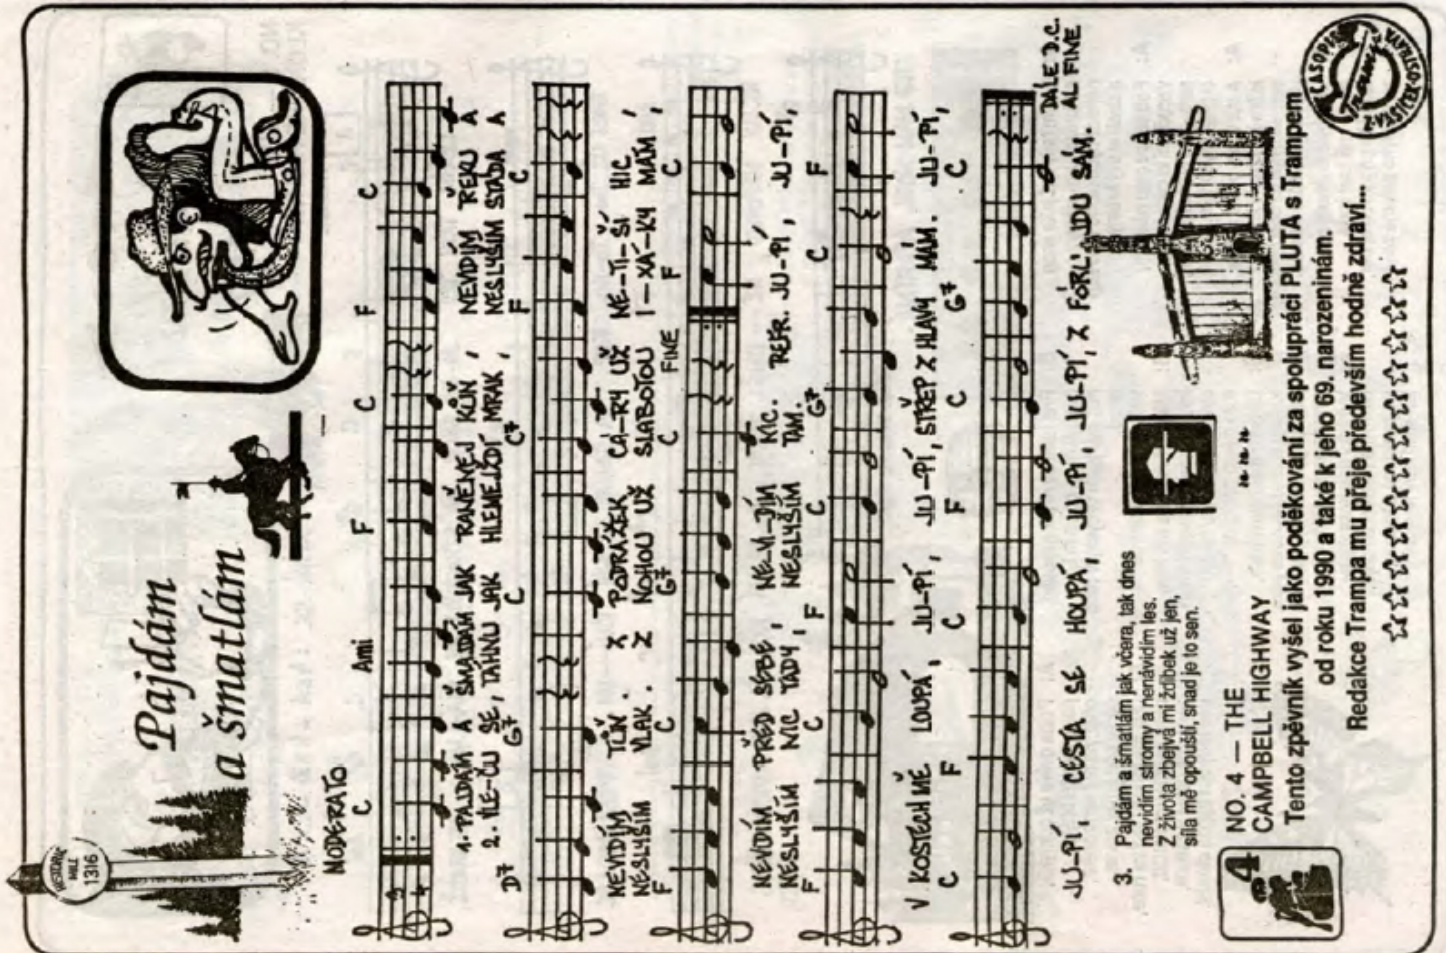 HISTORIC
MILE
1316
Pajdám
a šmatlám
MODERATO
C Ami F C F C
3 4
1. PAJDÁM A ŠMAJDÁM JAK RANĚNEJ KŮŇ, NEVIDÍM ŘEKU A
2. VLE-ČU SE, TÁHNU JAK HLEMEJŽDÍ MRAK, NESLYŠÍM STÁDA A
D7 G7 C C7 F C
NEVIDÍM TŮŇ. Z PODRÁŽEK CÁ-RY UŽ NE-TI-ŠÍ HIC
NESLYŠÍM VLAK. Z NOHOU UŽ SLABOTOU I-XÁ-KY MÁM,
F C G7 C FINE F C
NEVIDÍM PŘED SEBE NE-VI-DÍM NIC. REFR. JU-PÍ, JU-PÍ,
NESLYŠÍM NIC TADY, NESLYŠÍM TAM.
F C F C G7 C F
V KOSTECH MĚ LOUPÁ, JU-PÍ, JU-PÍ, STŘEP Z HLAVY MÁM. JU-PÍ,
C F C F C G7 C
JU-PÍ, CESTA SE HOUPÁ, JU-PÍ, JU-PÍ, Z FÓRU JDU SÁM.
DÁLE D.C.
AL FINE
3. Pajdám a šmatlám jak včera, tak dnes
nevidím stromy a nenávidím les.
Z života zbejvá mi ždibek už jen,
síla mě opouští, snad je to sen.
4
NO. 4 — THE
CAMPBELL HIGHWAY
Tento zpěvník vyšel jako poděkování za spolupráci PLUTA s Trampem
od roku 1990 a také k jeho 69. narozeninám.
Redakce Trampa mu přeje především hodně zdraví...
ČASOPIS
TRAMP